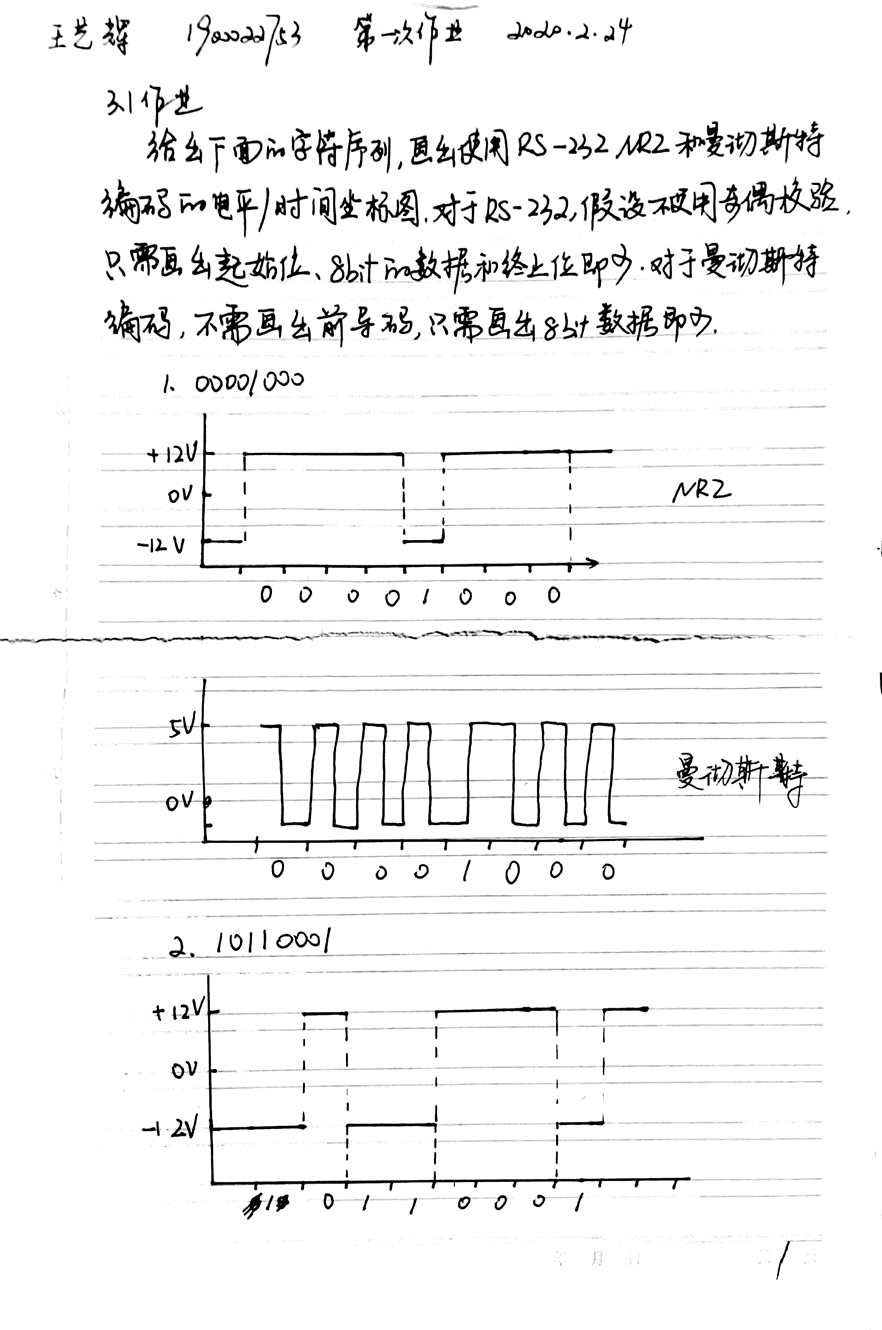 王艺辉 190022753 第一次作业 2020.2.24
3.1作业
给出下面的字符序列,画出使用RS-232 NRZ和曼彻斯特
编码的电平/时间坐标图.对于RS-232,假设不使用奇偶校验.
只需画出起始位、8bit的数据和终止位即可.对于曼彻斯特
编码,不需画出前导码,只需画出8bit数据即可.
1. 00001000
+12V
0V
NRZ
-12V
0 0 0 0 1 0 0 0
5V
曼彻斯特
0V
0 0 0 0 1 0 0 0
2. 10110001
+12V
0V
-12V
1 0 1 1 0 0 0 1
年 月 日
1